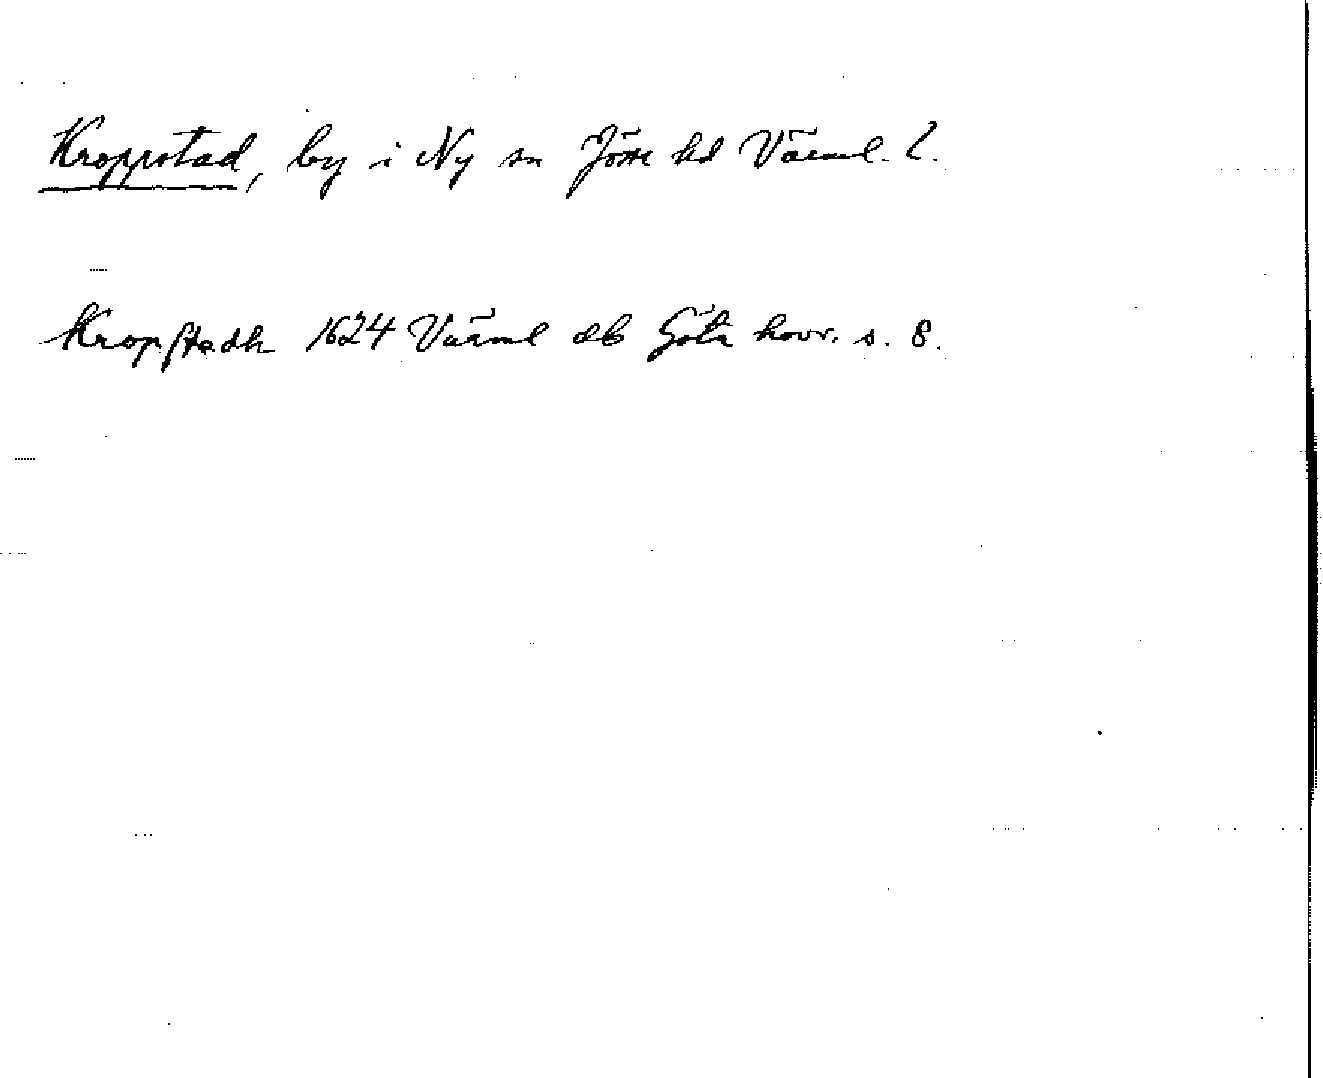 Kroppstad, by i Ny sn Jösse hd Värml. l.
Kropstadh 1624 Värml db Göta hovr. s. 8.